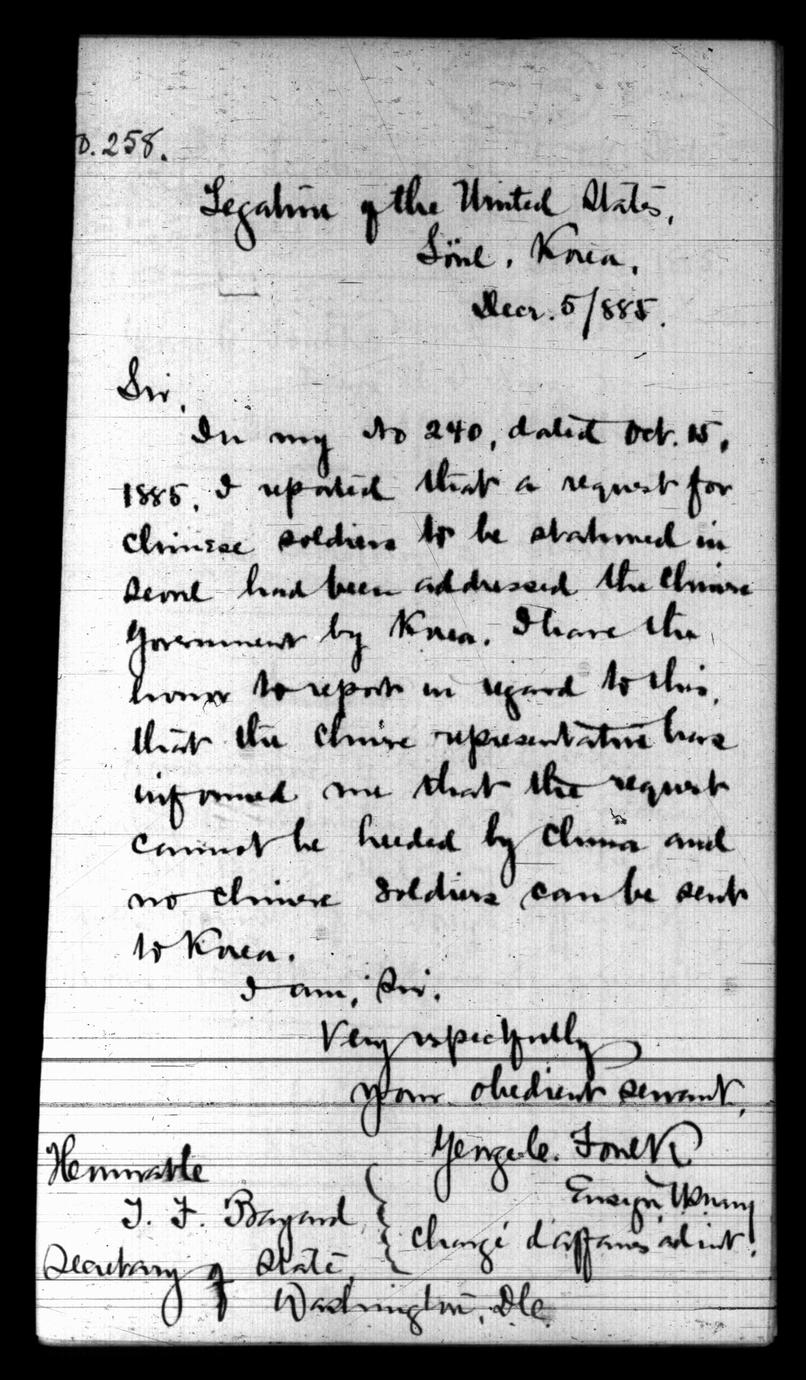 o. 258.
Legation of the United States,
Söul, Korea,
Decr. 5/885.
Sir,
In my No 240, dated Oct. 15,
1885, I reported that a request for
Chinese soldiers to be stationed in
Seoul had been addressed the Chinese
Government by Korea. I have the
honor to report in regard to this,
that the Chinese representative here
informed me that the request
cannot be heeded by China and
no Chinese soldiers can be sent
to Korea.
I am, Sir,
Very respectfully
your obedient servant,
George C. Foulk
Ensign U.S. Navy
Chargé d'affaires ad int.
Honorable
T. F. Bayard
Secretary of State
Washington, D.C.